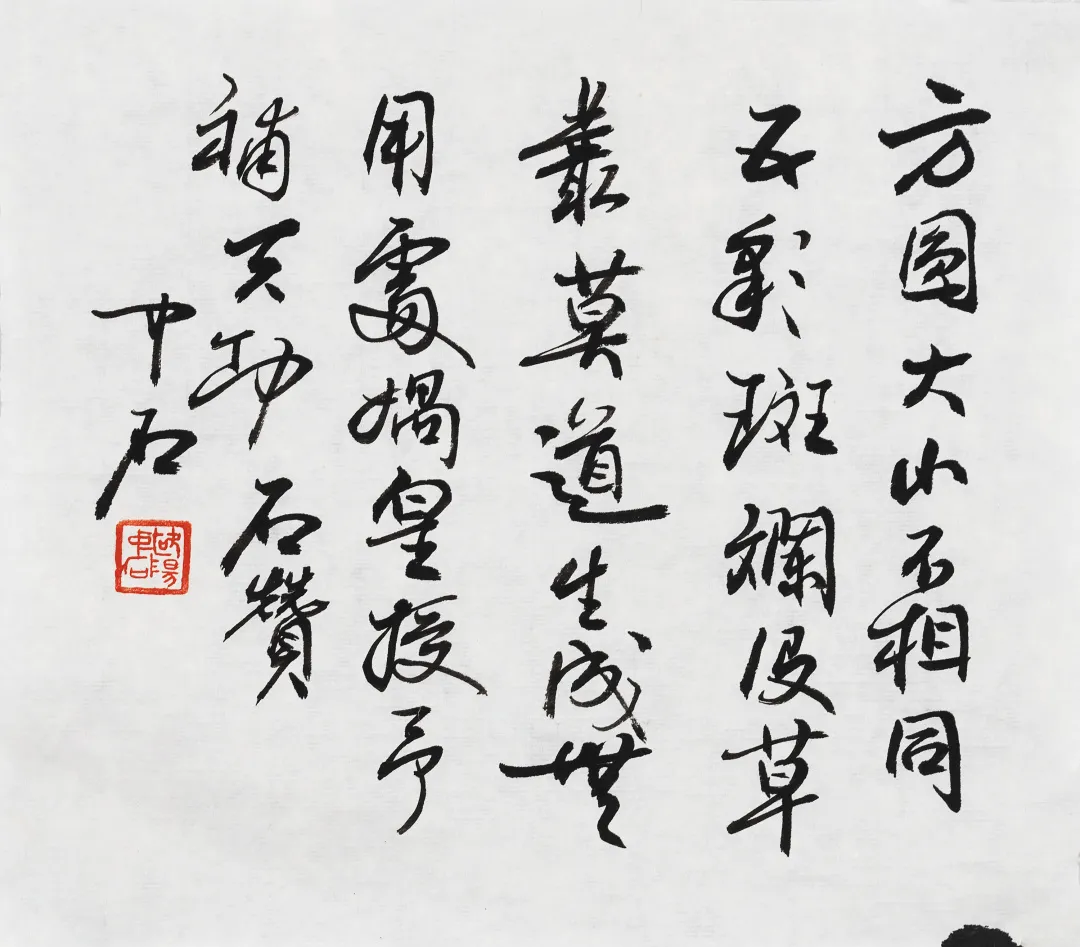 方圓大小不相同
五彩斑斕沒草
叢莫道生成無
用處媧皇授予
補天功石贊
中石
歐陽
中石